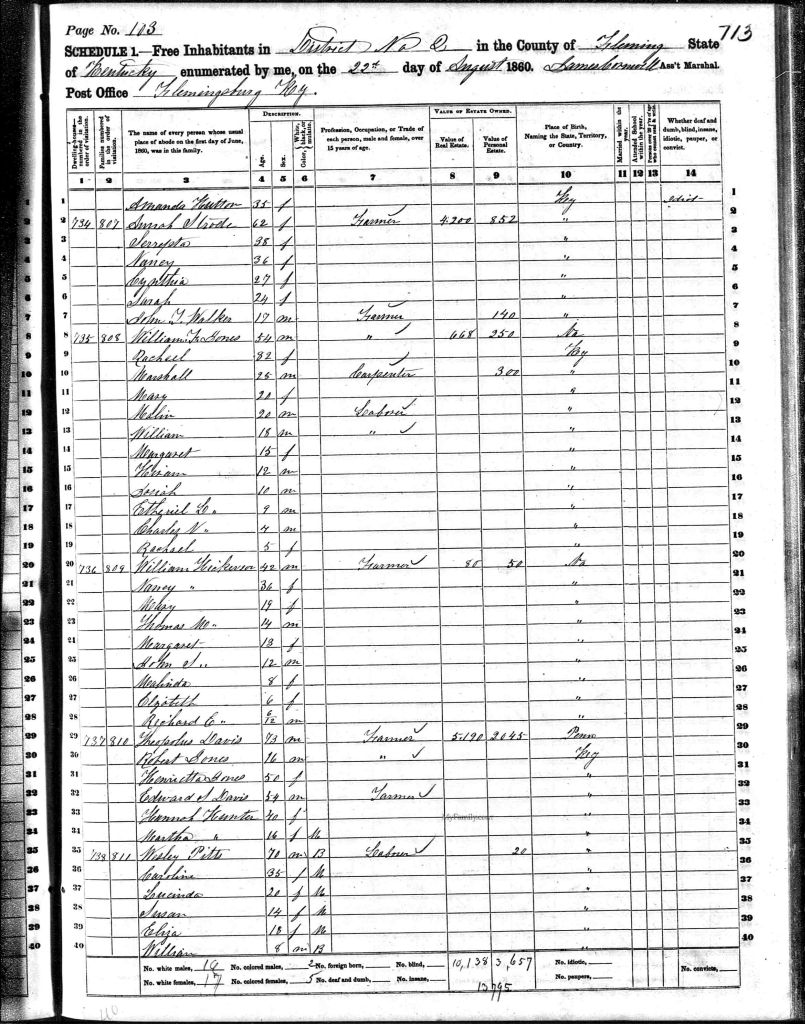 Page No. 103
713
SCHEDULE 1.—Free Inhabitants in District No 2 in the County of Fleming State
of Kentucky enumerated by me, on the 22d day of August 1860. Ass't Marshal.
Post Office Flemingsburg Ky.
Dwelling-houses—numbered in the order of visitation.
Families numbered in the order of visitation.
The name of every person whose usual place of abode on the first day of June, 1860, was in this family.
DESCRIPTION.
Age.
Sex.
Color, White, black, or mulatto.
Profession, Occupation, or Trade of each person, male and female, over 15 years of age.
VALUE OF ESTATE OWNED.
Value of Real Estate.
Value of Personal Estate.
Place of Birth, Naming the State, Territory, or Country.
Married within the year.
Attended School within the year.
Whether deaf and dumb, blind, insane, idiotic, pauper, or convict.
1 2 3 4 5 6 7 8 9 10 11 12 13 14
1 Amanda Hutton 35 f Ky idiot
2 734 807 Strode 62 f Farmer 4200 852 "
3 38 f "
4 Nancy 36 f "
5 Cynthia 27 f "
6 Sarah 24 f "
7 John T. Walker 17 m Farmer 140 "
8 735 808 William Jones 54 m " 668 250 Va
9 Rachael 32 f Ky
10 Marshall 25 m Carpenter 300 "
11 Mary 20 f "
12 20 m Laborer "
13 William 18 m " "
14 Margaret 15 f "
15 Hiram 12 m "
16 Josiah 10 m "
17 L " 9 m "
18 Charles N " 7 m "
19 Rachael 5 f "
20 736 809 William Hickerson 42 m Farmer 80 50 Va
21 Nancy " 36 f "
22 Mary 19 f "
23 Thomas M " 14 m "
24 Margaret 13 f "
25 John S " 12 m "
26 Malinda 8 f "
27 Elizabeth 6 f "
28 Richard C " 6/12 m "
29 737 810 Davis 73 m Farmer 5190 2045 Penn
30 Robert Jones 16 m " Ky
31 Henrietta Jones 50 f "
32 Edward S Davis 54 m Farmer "
33 Hannah Hunter 40 f "
34 Martha " 16 f M "
35 738 811 Wesley Pitts 70 m B Laborer 20 "
36 Caroline 35 f M "
37 Lucinda 20 f M "
38 Susan 14 f M "
39 Eliza 18 f M "
40 William 8 m B "
MyFamily.com
No. white males, 18 No. colored males, 2 No. foreign born, No. blind, 10,138 3,657 No. idiotic, No. convicts,
No. white females, 17 No. colored females, 5 No. deaf and dumb, No. insane, No. paupers,
13795